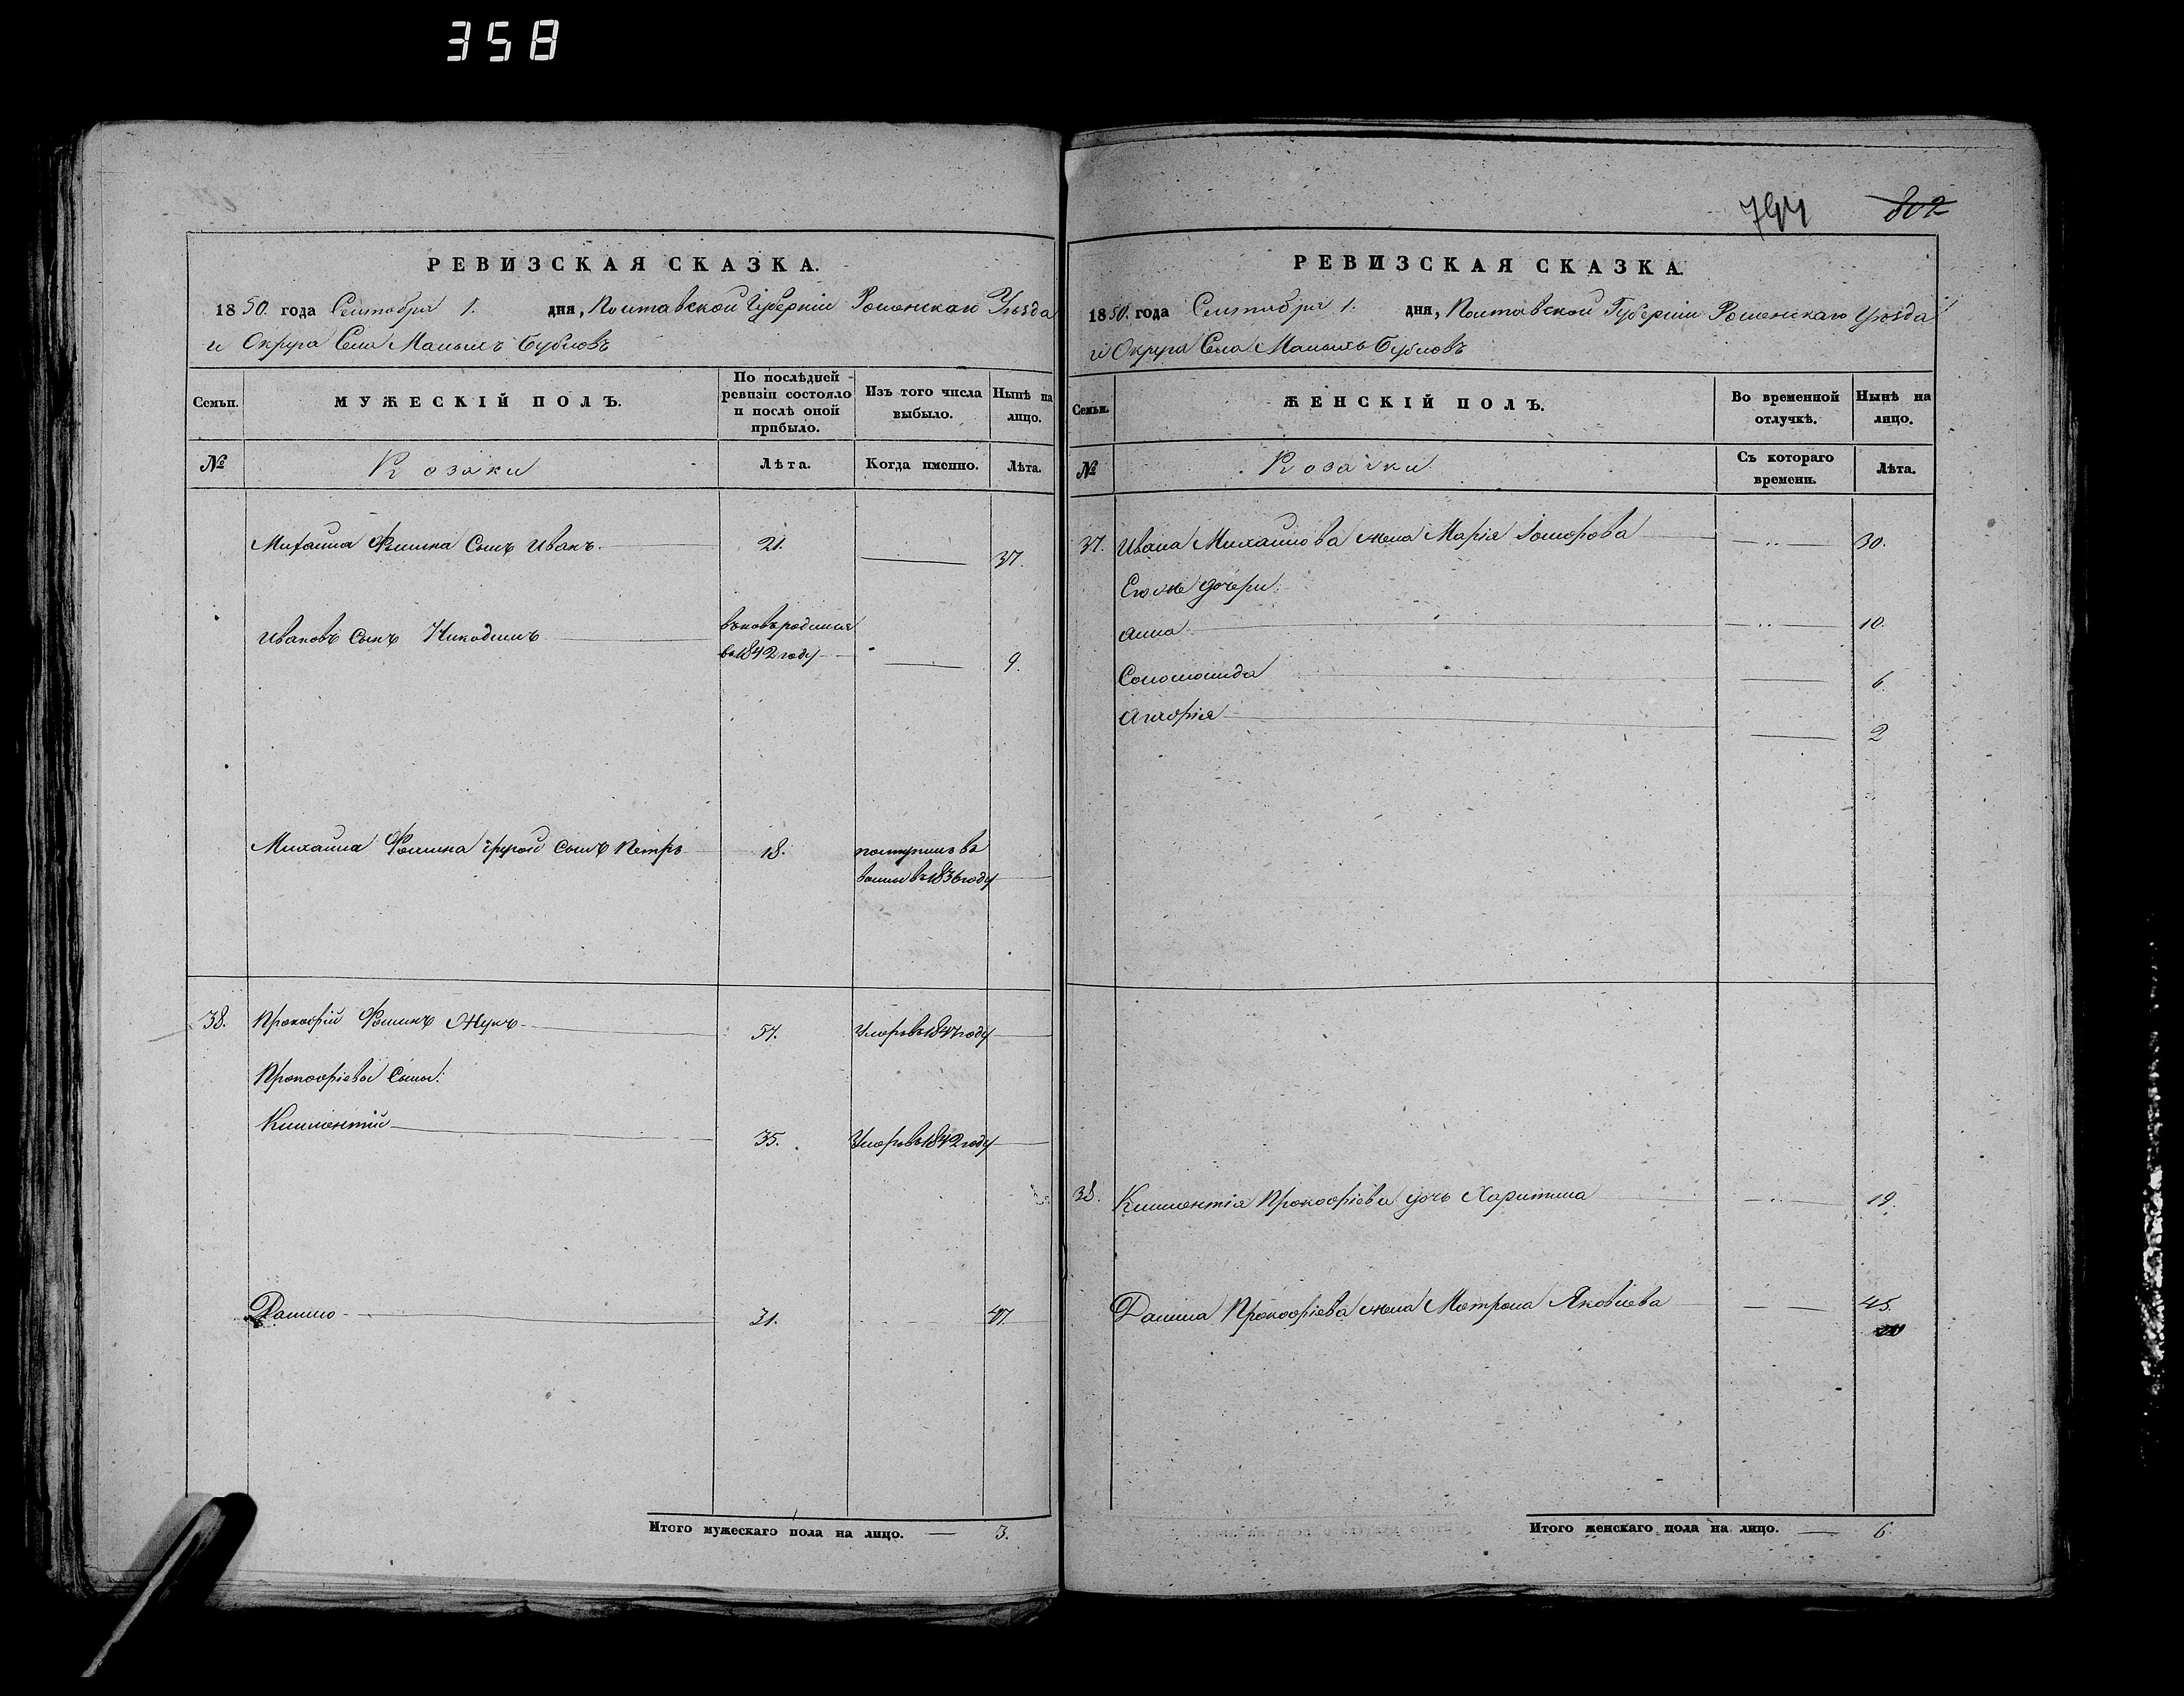 358
РЕВИЗСКАЯ СКАЗКА.
1850. года Сентября 1. дня, Полтавской Губерніи Роменскаго Уѣзда
и Округа Села Малыхъ Бубновъ
Семьи.
МУЖЕСКІЙ ПОЛЪ.
По послѣдней ревизіи состояло и послѣ оной прибыло.
Изъ того числа выбыло.
Нынѣ на лицо.
№
Козаки
Лѣта.
Когда именно.
Лѣта.
Михайла Фомина Сынъ Иванъ. 21. 37.
Ивановъ Сынъ Никодимъ вновьродился
въ 1842 году 9.
Михайла Фомина другой Сынъ Петръ 18. поступилъ въ
въ 1836 году
38. Прокофій Фоминъ Жукъ 57. Умеръ въ 1847 году
Прокофіевы Сыны:
Климентій 35. Умеръ въ 1842 году
Данило 31. 47.
Итого мужескаго пола на лицо. 3.
794 802
РЕВИЗСКАЯ СКАЗКА.
1850. года Сентября 1. дня, Полтавской Губерніи Роменскаго Уѣзда
и Округа Села Малыхъ Бубновъ
Семьи.
ЖЕНСКІЙ ПОЛЪ.
Во временной отлучкѣ.
Нынѣ на лицо.
№
Козачки
Съ котораго времени.
Лѣта.
37. Ивана Михайлова жена Марія 30.
Его же дочери:
Анна 10.
Соломонида 6.
Агафія 2
38. Климентія Прокофіева дочь Харитина 19.
Данила Прокофіева жена Матрона Яковлева 45.
Итого женскаго пола на лицо. 6.